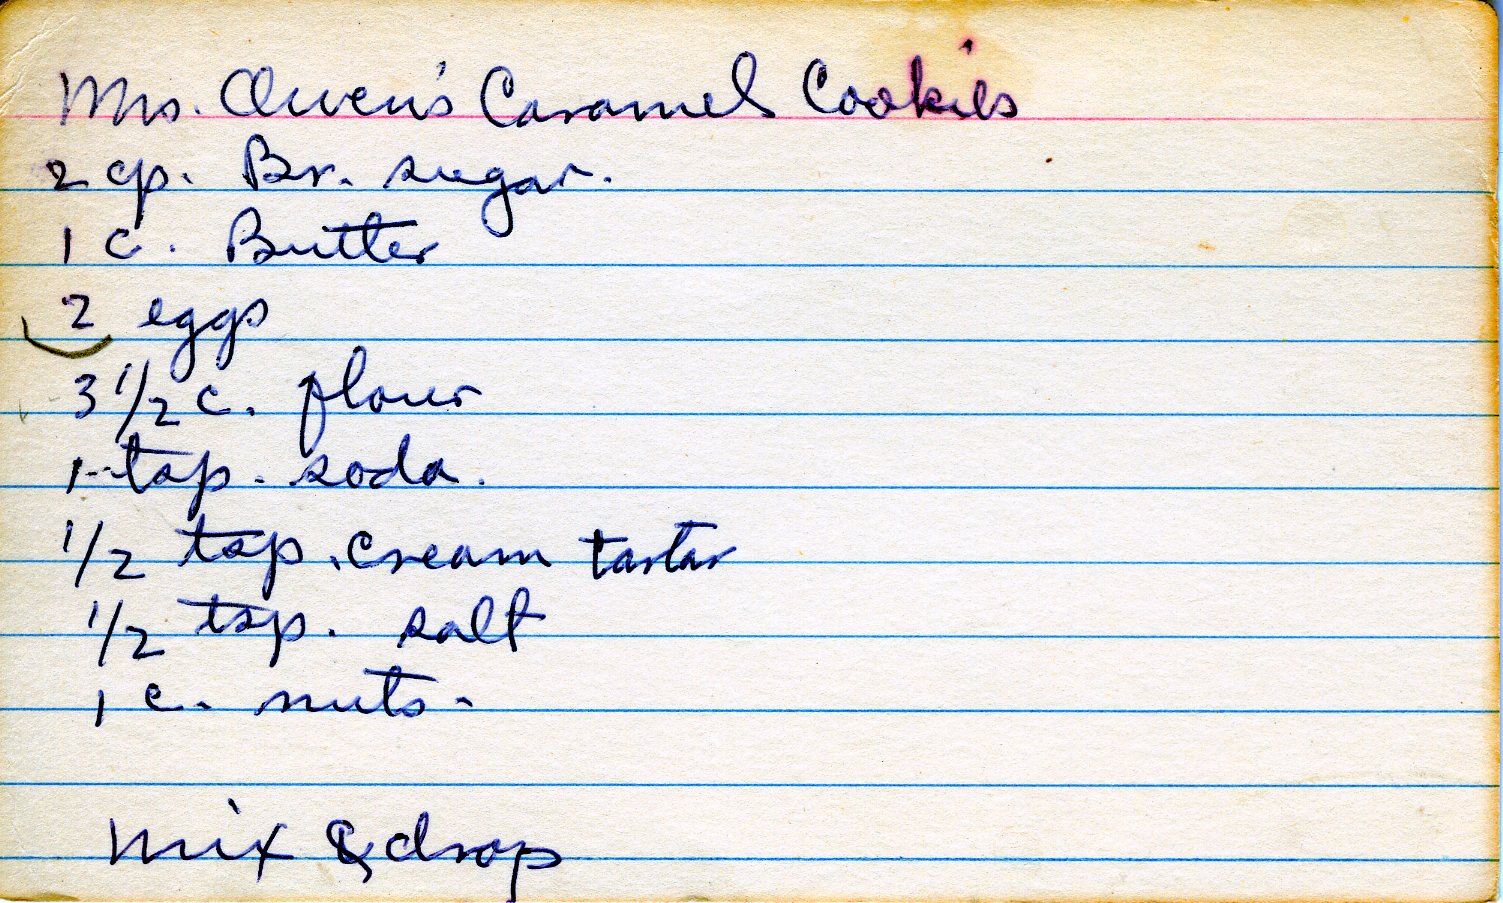 Mrs. Owen's Caramel Cookies
2 cp. Br. sugar.
1 c. Butter
2 eggs
3 1/2 c. flour
1 tsp. soda.
1/2 tsp. cream tartar
1/2 tsp. salt
1 c. nuts.
mix & drop